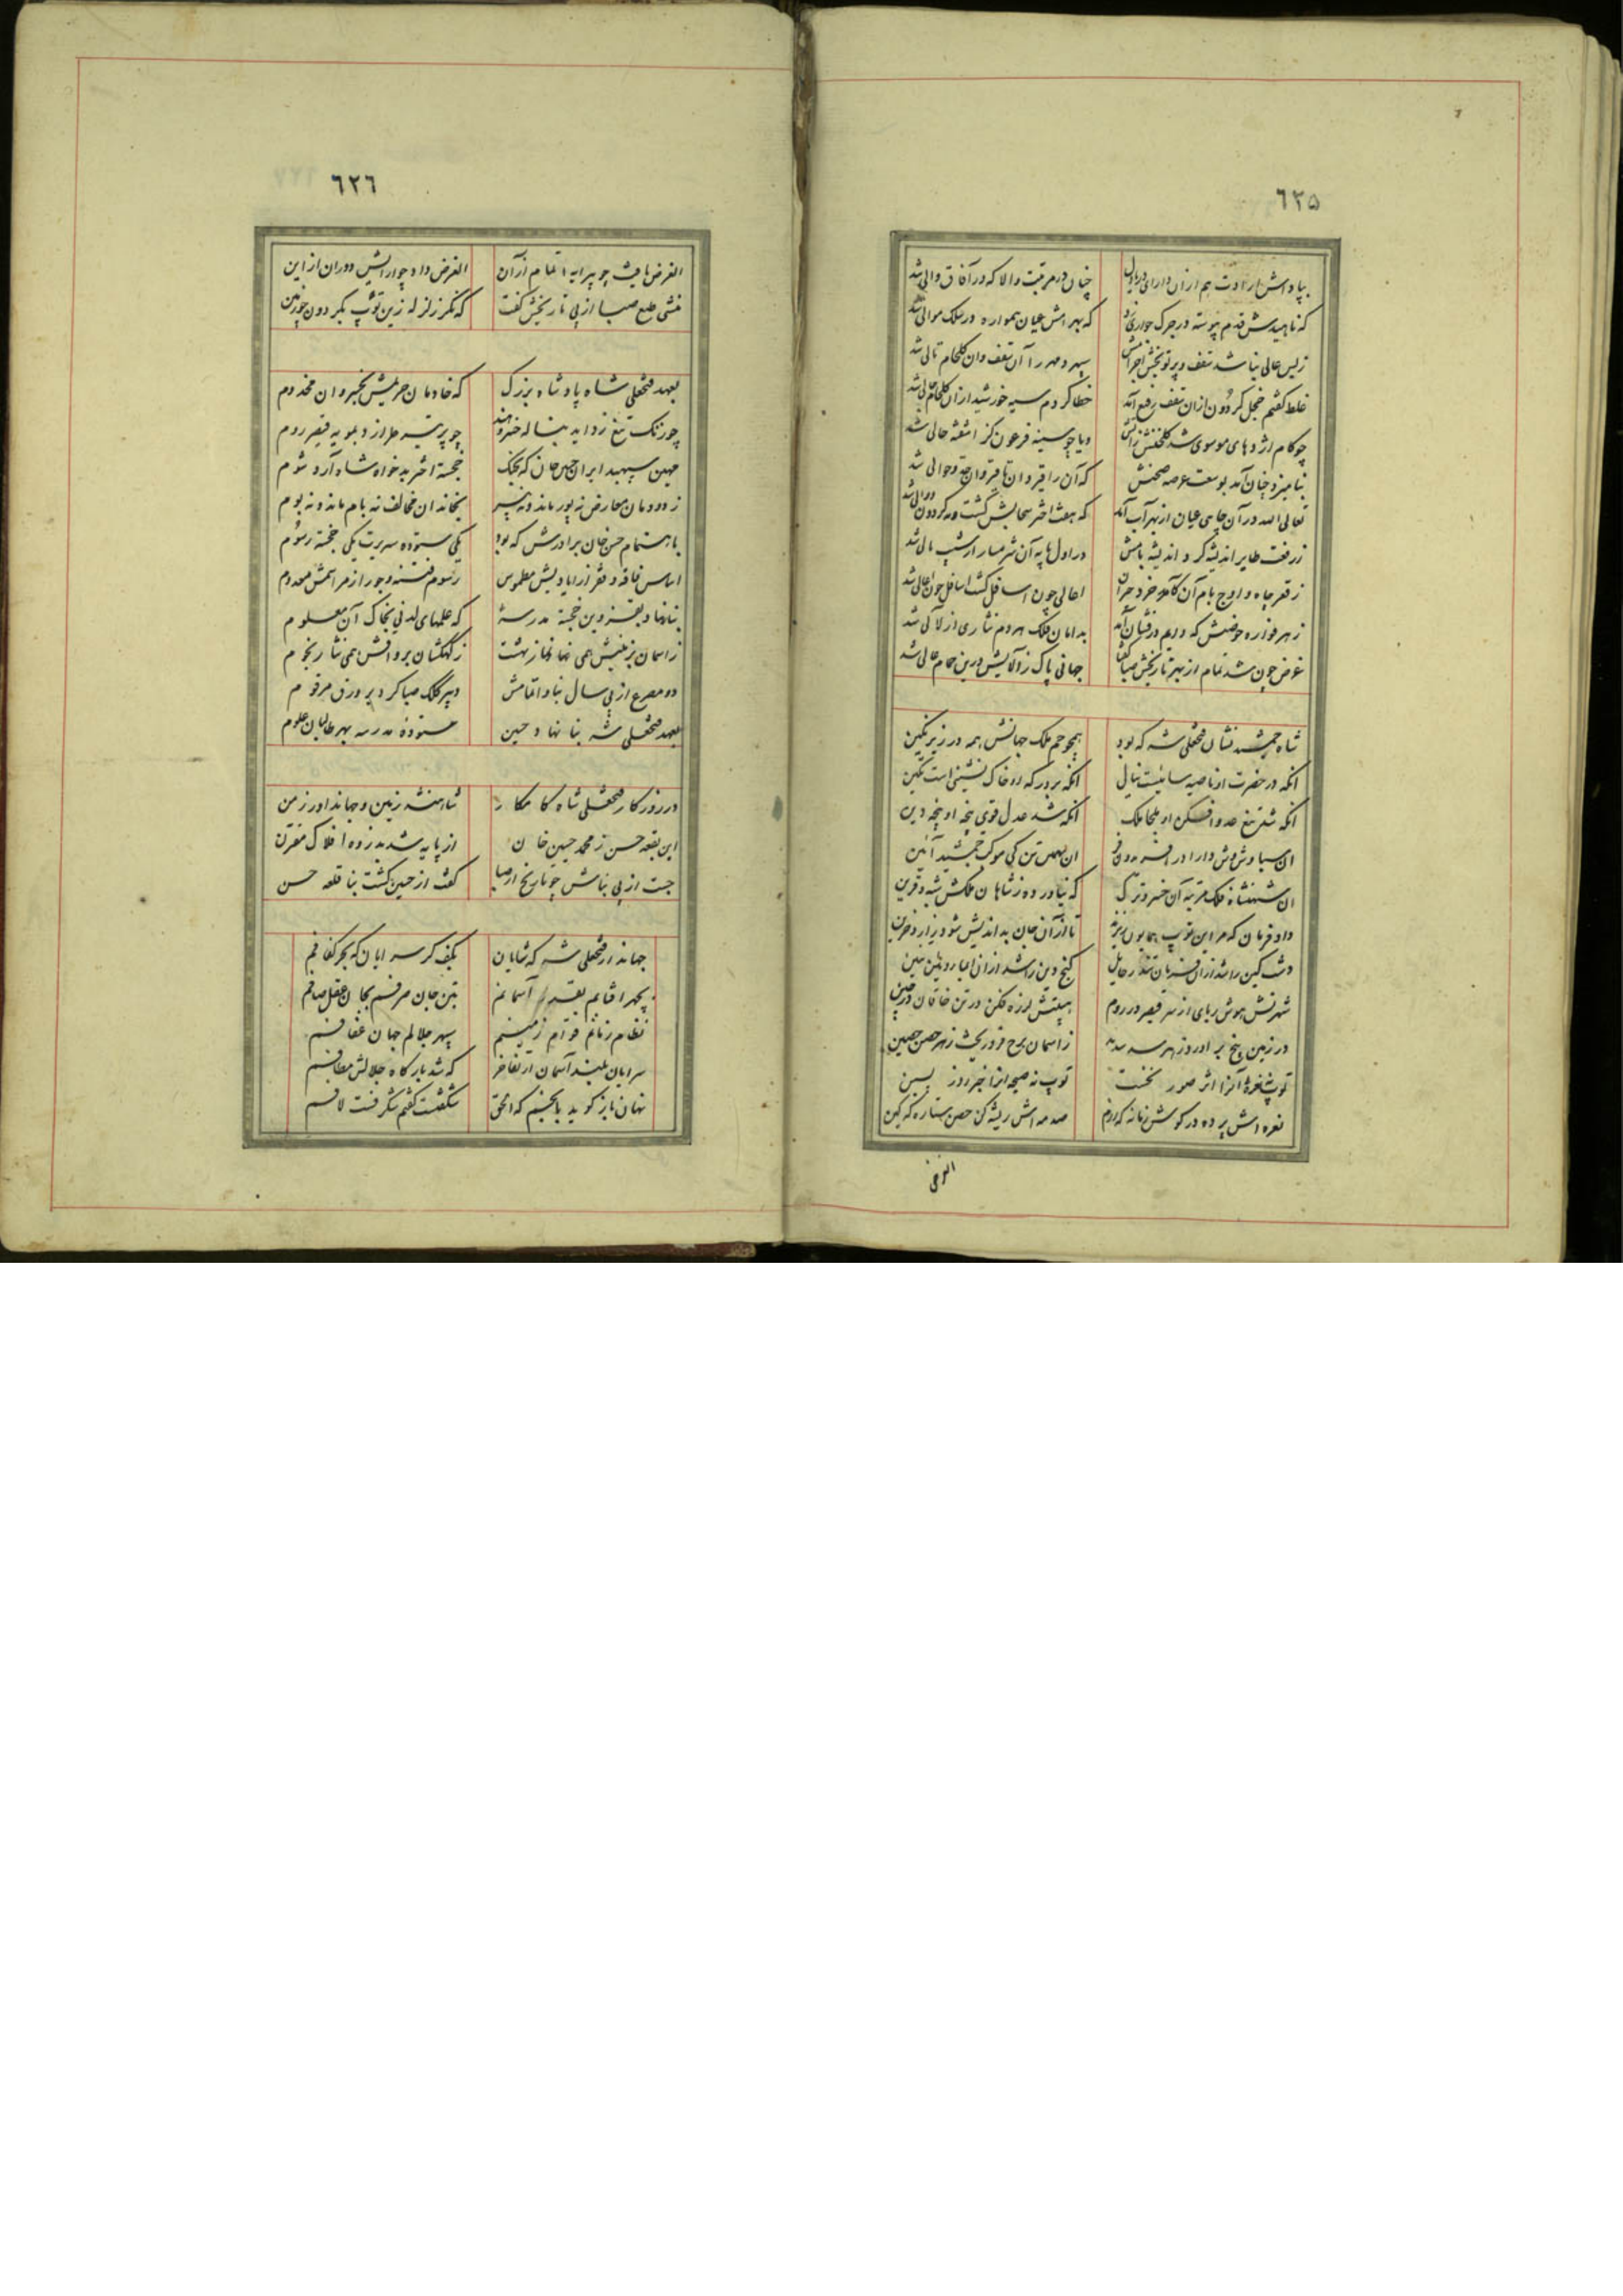 ٦٢۵
بپاداش ارادت هم ازان دارای دریادل چنان در مرتبت والا که در آفاق والی شد
که ناهیدش قدم پیوسته در جرک جواری زد که بهرامش عیان همواره در سلک موالی شد
زبس عالی بنا شد سقف و پرتو بخش اجرامش سپهر و مهر را آن سقف وان گلجام تالی شد
غلط گفتم خجل گردون ازان سقف رفیع آمد خطا کردم سیه خورشید ازان گلجام عالی شد
چو کام اژدهای موسوی شد گلخنش زآتش ویا چو سینه فرعون کز
بنامیزد چنان آمد بوسعت عرصه صحنش که آن را قیروان تا قیروان حد و حوالی شد
تعالی الله در آن چاهی عیان از بهر آب آمد که هفت اختر سحابش گشت ونه گردون دوالی شد
ز رفعت طایر اندیشه کرد اندیشهٔ بامش در اول پایه آن شرمسار از شیب بالی شد
ز قعر چاه و اوج بام آن کآمد خرد حیران اعالی چون اسافل گشت اسافل چون اعالی شد
ز هر فواره حوضش که دایم درفشان آمد بدامان فلک هردم نثاری از لآلی شد
غرض چون شد تمام از بهر تاریخش صبا گفتا جهانی پاک زآلایش درین حمام عالی شد
شاه جمشید نشان فتحعلی شه که بود همچو جم ملک جهانش همه در زیر نگین
انکه در حضرت او ناصیه سائیست نیال انکه بر درگه او خاک نشینی است تکین
انکه شد تیغ عدو افکن او ملجا ملک انکه شد عدل قوی پنجه او پنجه دین
ان سیاوش وش دارا در افریدون فر ان تهمتن تن کی موکب جمشید آئین
ان شهنشاه فلک مرتبه آن خسرو ترک که نیاورده ز شاهان فلکش شبه و قرین
داد فرمان که مر این توپ همایون ریزند تا ازآن جان بداندیش شود زار و حزین
دشت کین را شد ازان گنج دین را شد ازان
شررش هوش ربای از سر قیصر در روم هیبتش لرزه فکن در تن خاقان در چین
در زمین بیخ بر اورد ز هر سد سدید ز آسمان برج فرو ریخت ز هر حصن حصین
توپ نه نفخه آنرا اثر صور نخست توپ نه صیحه انرا خبر روز پسین
نعره اش پرده در گوش زمانه که رزم صدمه اش ریشه کن حصن ستاره که کین
الغرض
٦٢٦
الغرض یافت چو پیرایه اتمام ازآن الغرض داد چو ارایش دوران از این
منشی طبع صبا از پی تاریخش گفت که فکند زلزله زین توپ بگردون چو زمین
بعهد فتحعلی شاه پادشاه بزرگ که خادمان حریمش بخسروان مخدوم
چو زنگ تیغ زداید بناله خسرو هند چو پر تیر طرازد بمویه قیصر روم
مهین سپهبد ایران حسین خان که بجنگ خجسته اختر بدخواه شاه آرد شوم
ز دودمان معارض نه پور ماند و نه پیر بخاندان مخالف نه بام ماند و نه بوم
باهتمام حسن خان برادرش که بود یکی ستوده سریرت یکی خجسته رسوم
اساس فاقه و فقر از ایادیش مطموس رسوم فتنه و جور از مراسمش معدوم
بنا نهاد بقزوین خجسته مدرسهٔ که علمهای لدنی بخاک آن معلوم
ز آسمان بزمینش همی نماز بهشت ز کهکشان برواقش همی نثار نجوم
دو مصرع از پی سال بنا و اتمامش دبیر کلک صبا کرد بر ورق مرقوم
بعهد فتحعلی شه بنا نهاد حسین ستوده مدرسه بهر طالبان علوم
در روزگار فتحعلی شاه کامکار شاهنشه زمین و جهاندار زمن
این بقعه حسن ز محمد حسین خان از پایه شد بذروه افلاک مقترن
جست از پی بنایش چو تاریخ از صبا گفت از حسین گشت بنا قلعه حسن
جهاندار فتحعلی شه که شایان بکف گر سرایان که بحر کفافم
بچهر افتابم بقدر آسمانم بتن جان صرفم بجان عقل صافم
نظام زمانم قوام زمینم سپهر جلالم جهان عفافم
سرایان بلند آسمان از تفاخر که شد بارگاه جلالش مطافم
نهان باز گوید بانجم که الحق شگفت گفتم شگرفت لافم